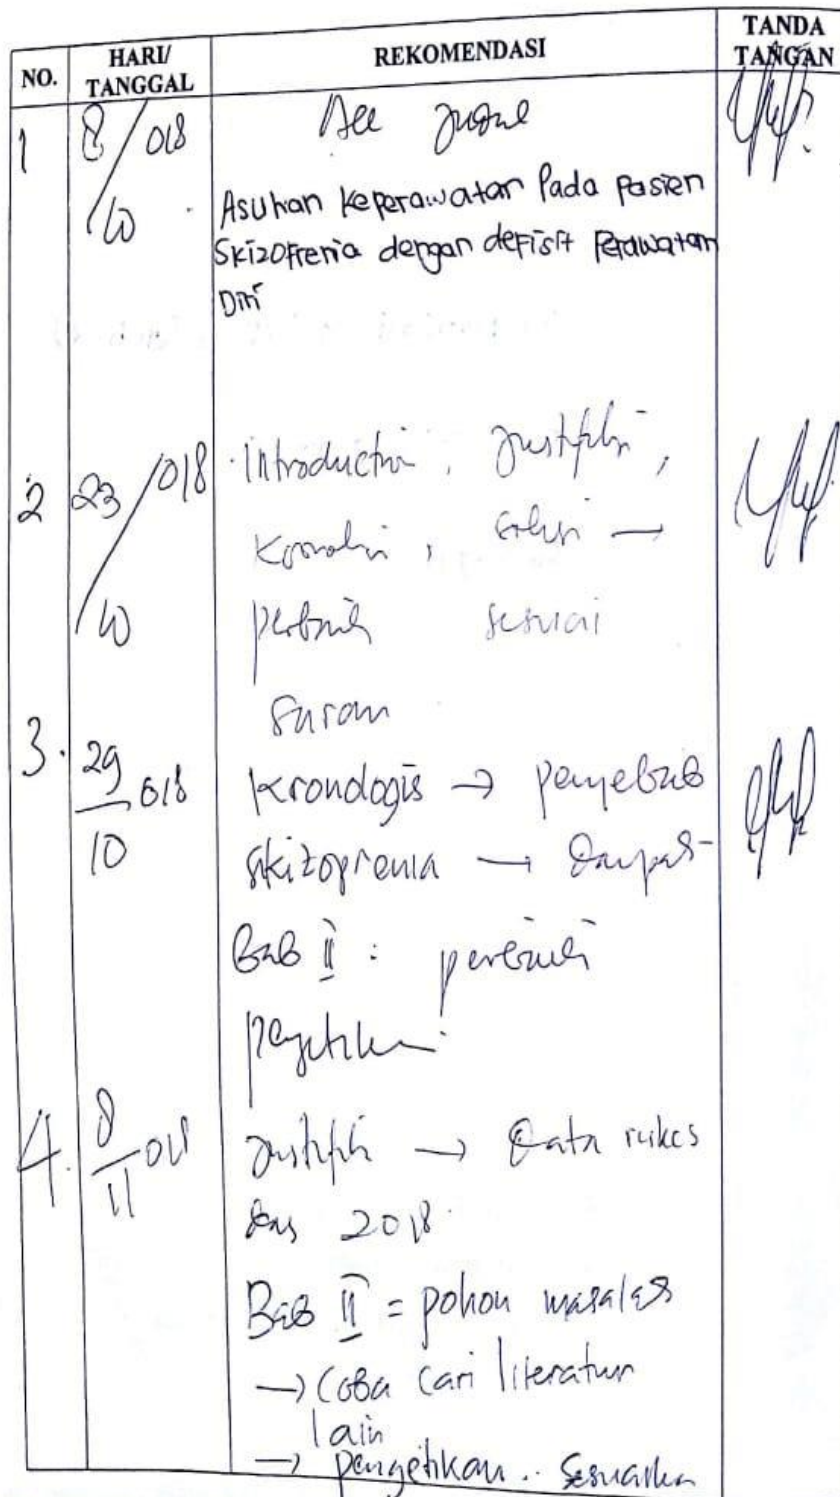 NO.
HARI/
TANGGAL
REKOMENDASI
TANDA
TANGAN
1
8/10 018
Acc Judul
Asuhan Keperawatan Pada Pasien
Skizofrenia dengan defisit Perawatan
Diri
2
23/10 018
Introduction, Justifikasi,
Kronologi, solusi →
perbaiki sesuai
saran
3.
29/10 018
Kronologis → penyebab
skizoprenia → dampak
Bab II : perbaiki
pengetikan
4.
8/11 018
Justifikasi → Data rikes
das 2018
Bab II = pohon masalah
→ Coba cari literatur
lain
→ pengetikan .. sesuaikan